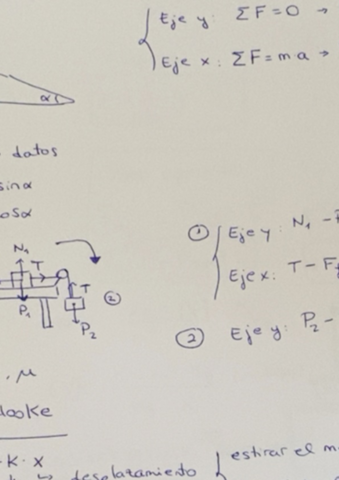 Eje y: ΣF=0 →
Eje x: ΣF=m a →
α
datos
sinα
cosα
N₁
T
T
P₁
P₂
②
① Eje y: N₁ -
Eje x: T - F
② Eje y: P₂ -
, μ
Hooke
K · x
↳ desplazamiento
estirar el m